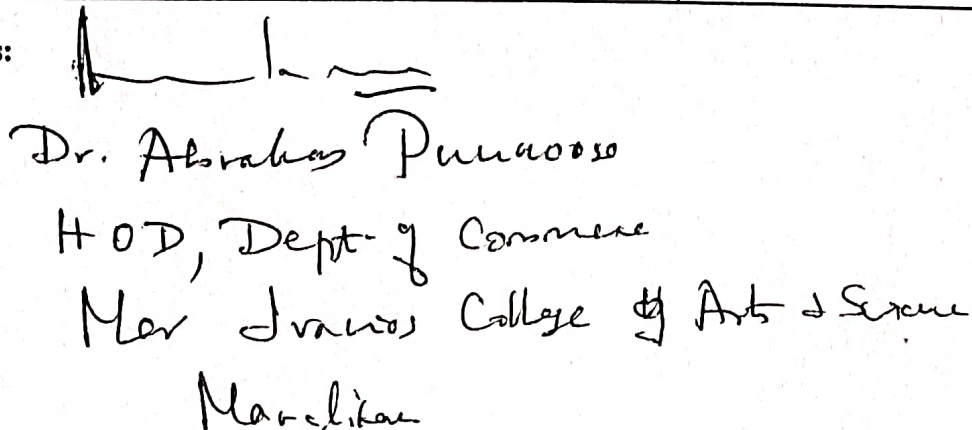 s:
Dr. Abraham Punnoose
HOD, Dept. of Commerce
Mar Ivanios College of Arts & Science
Mavelikara